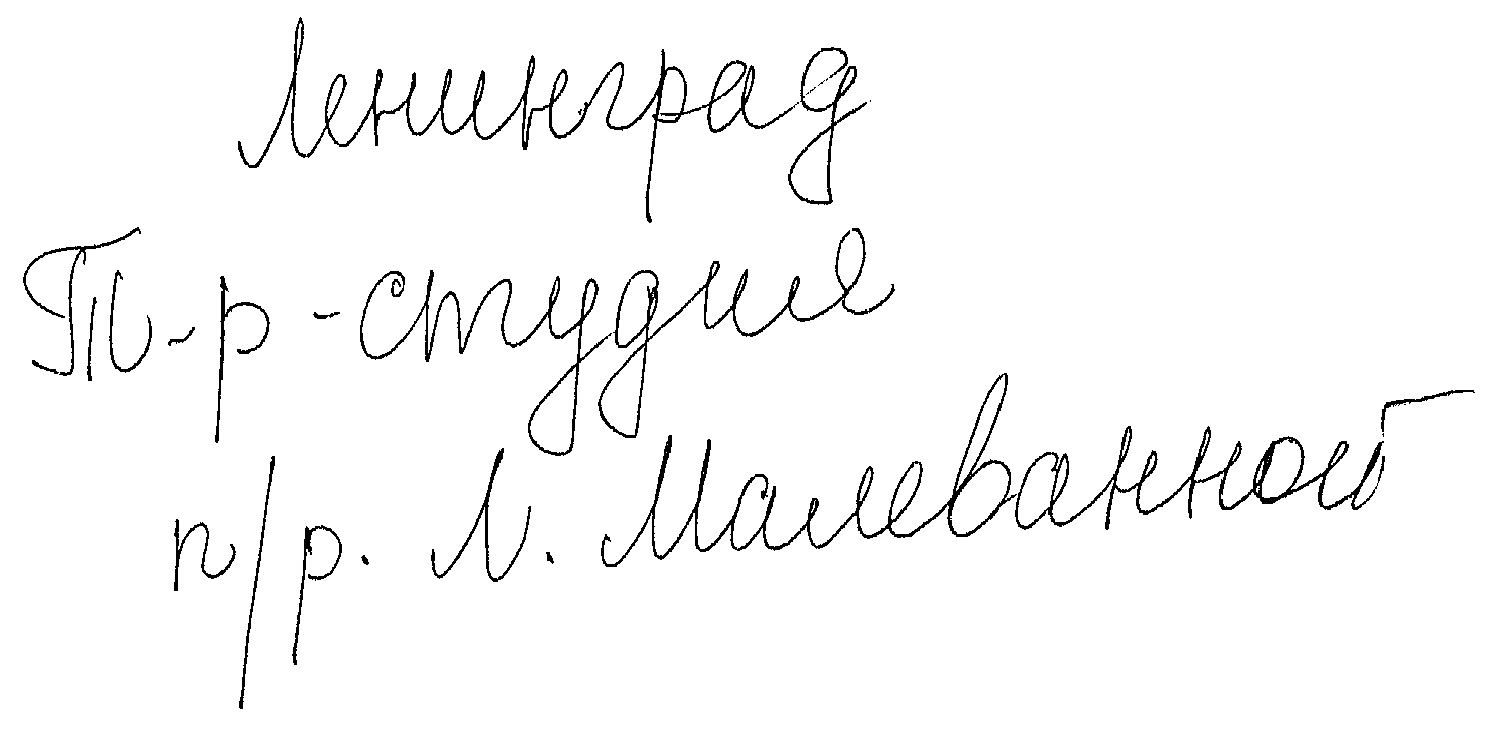 Ленинград
Т-р-студия
п/р. Л. Малеванной